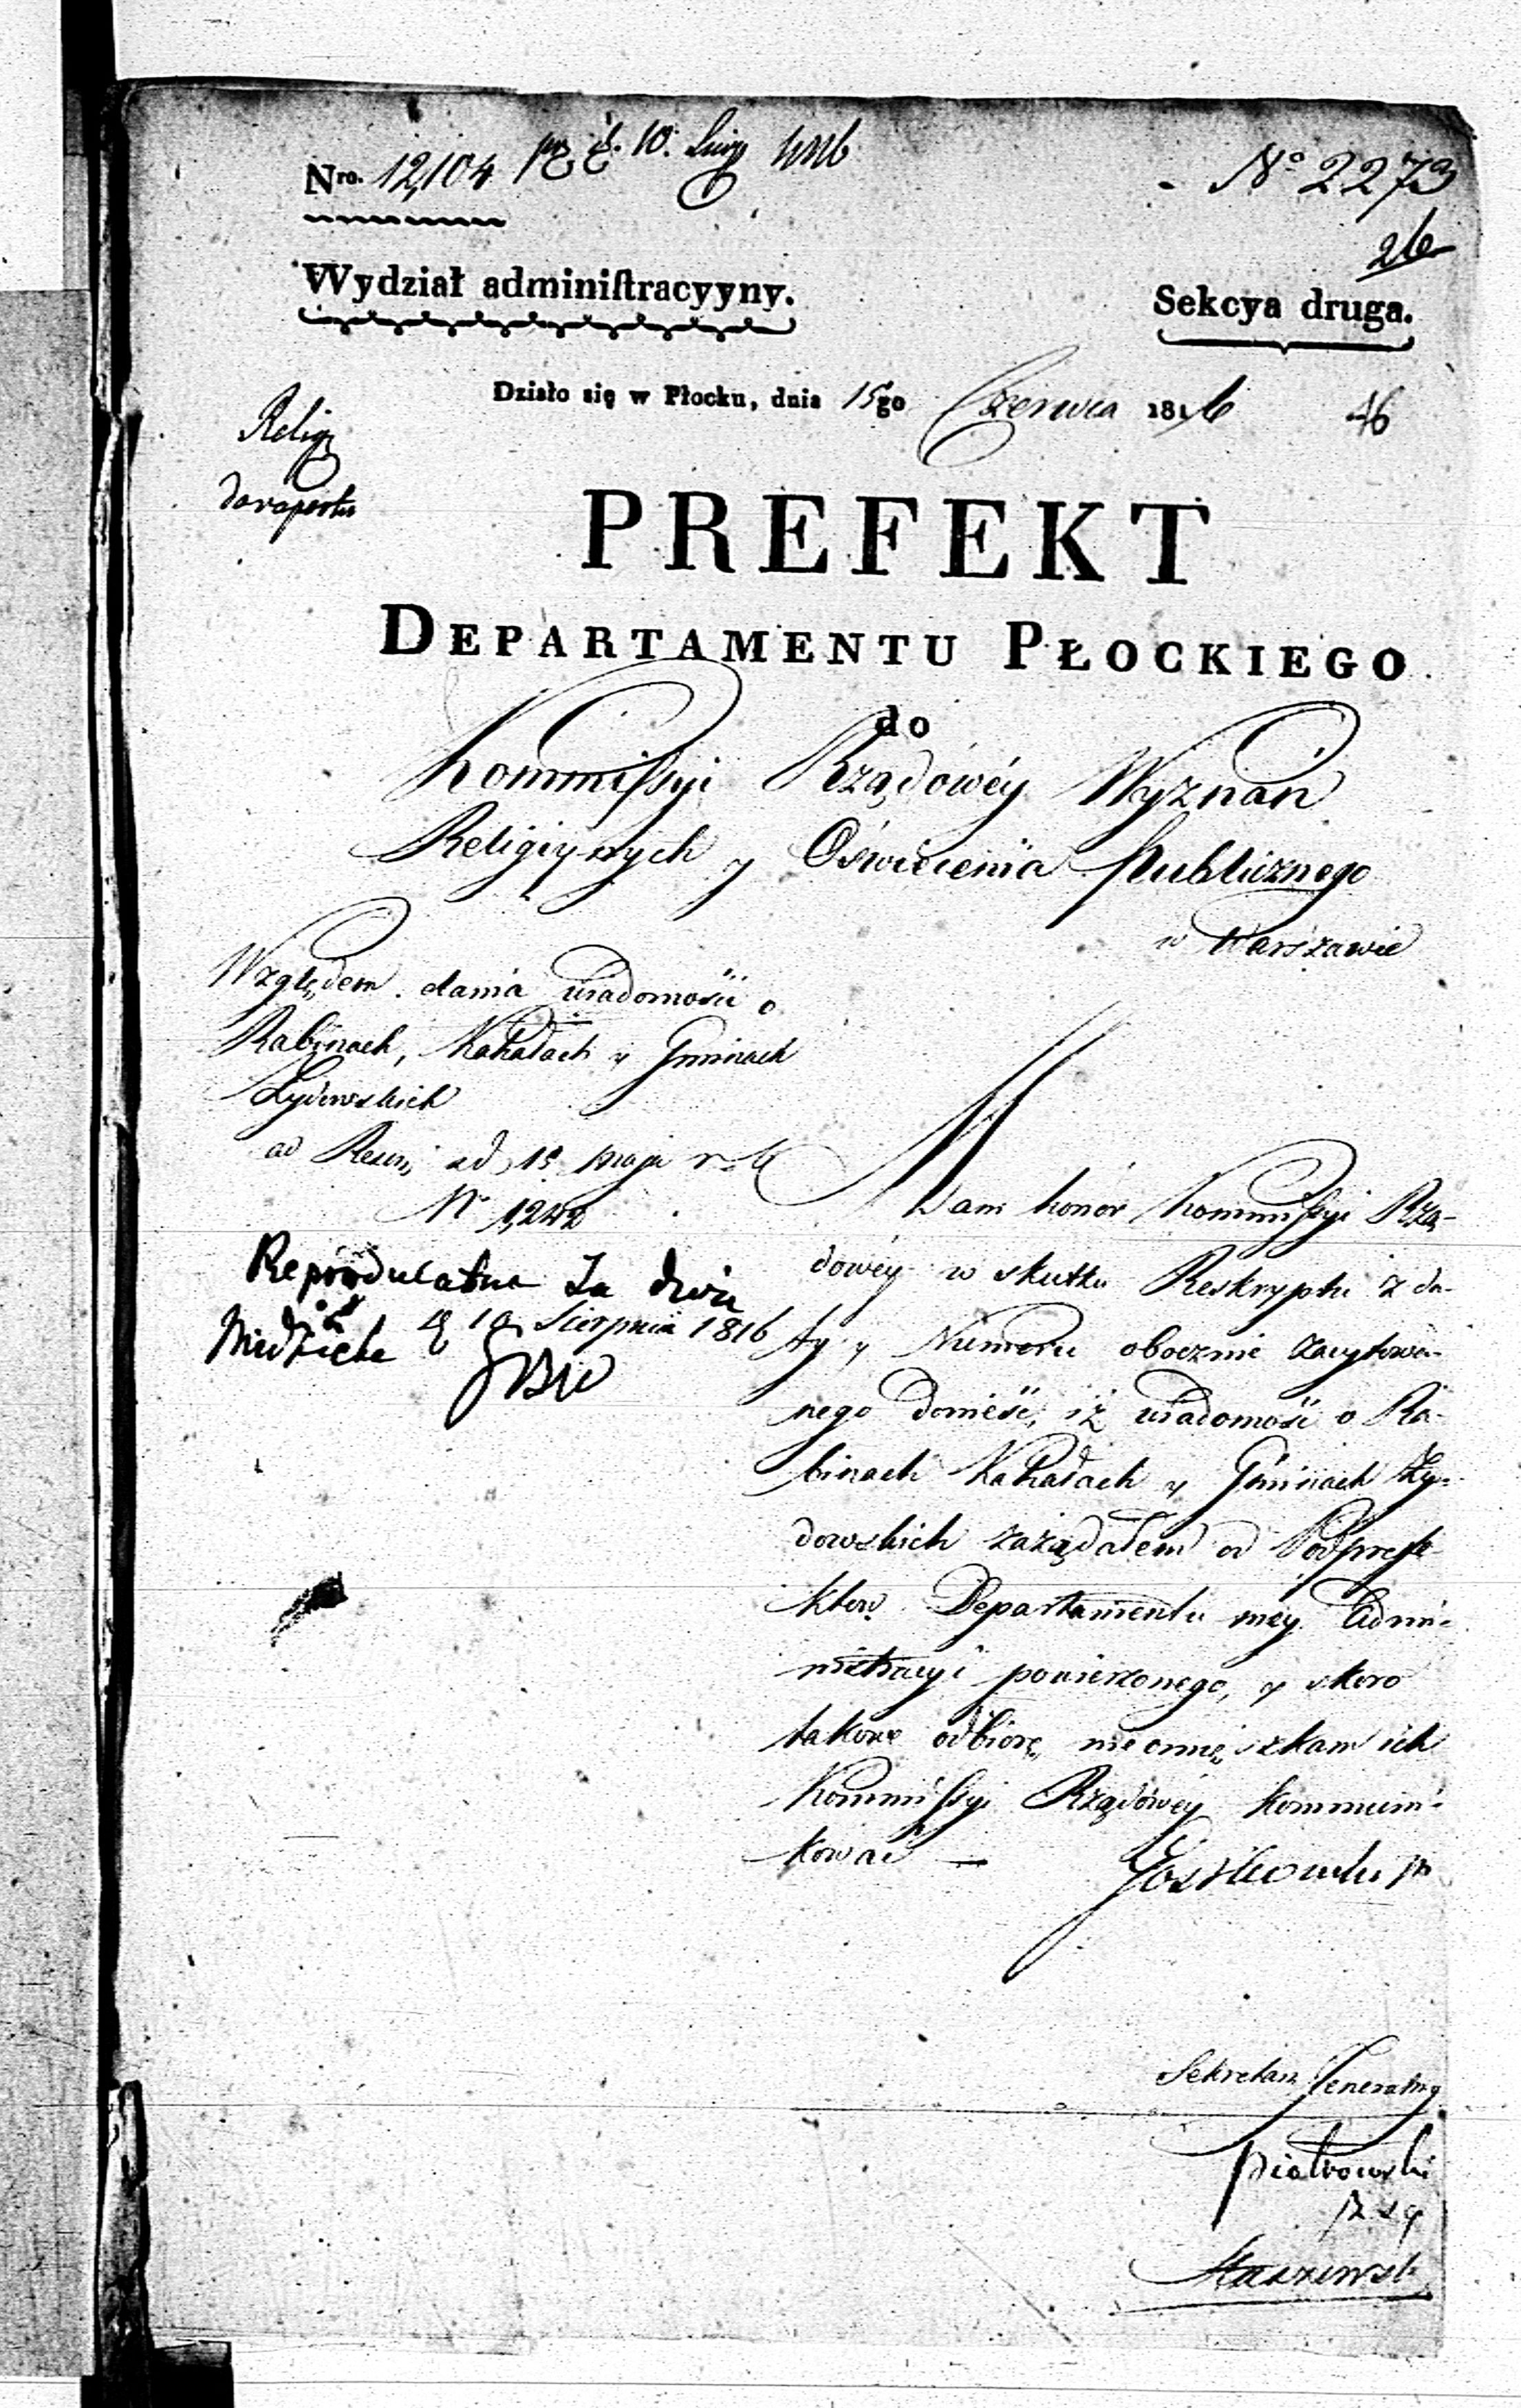 Nro. 12,104
1816
No 2273
26
Wydział adminiſtracyyny.
Sekcya druga.
Działo się w Płocku, dnia 15go Czerwca 1816
46
Relig
do raportu
PREFEKT
DEPARTAMENTU PŁOCKIEGO
do
Kommiſsyi Rządowéy Wyznań
Religiynych y Oświecenia Publicznego
w Warszawie
Względem dania wiadomości o
Rabinach, Kahałach y Gminach
Żydowskich
ad Reskr, dd 15 maja r. b
Nr 1,242
Mam honor Kommiſsyi Rzą-
dowéy w skutku Reskryptu z da-
ty y Numeru obocznie zacytowa-
nego donieść, iż wiadomość o Ra-
binach Kahałach y Gminach Ży-
dowskich zażądałem od Podprefe-
któw Departamentu mey Admi-
nistracyi powierzonego, y skoro
takowe odbiorę, nieomięszkam ich
Kommiſsyi Rządowéy kommuni-
kować —
Reproducatur za dwie
Niedziele d 10 Sierpnia 1816
Sekretarz Jeneralny
Piotrowski